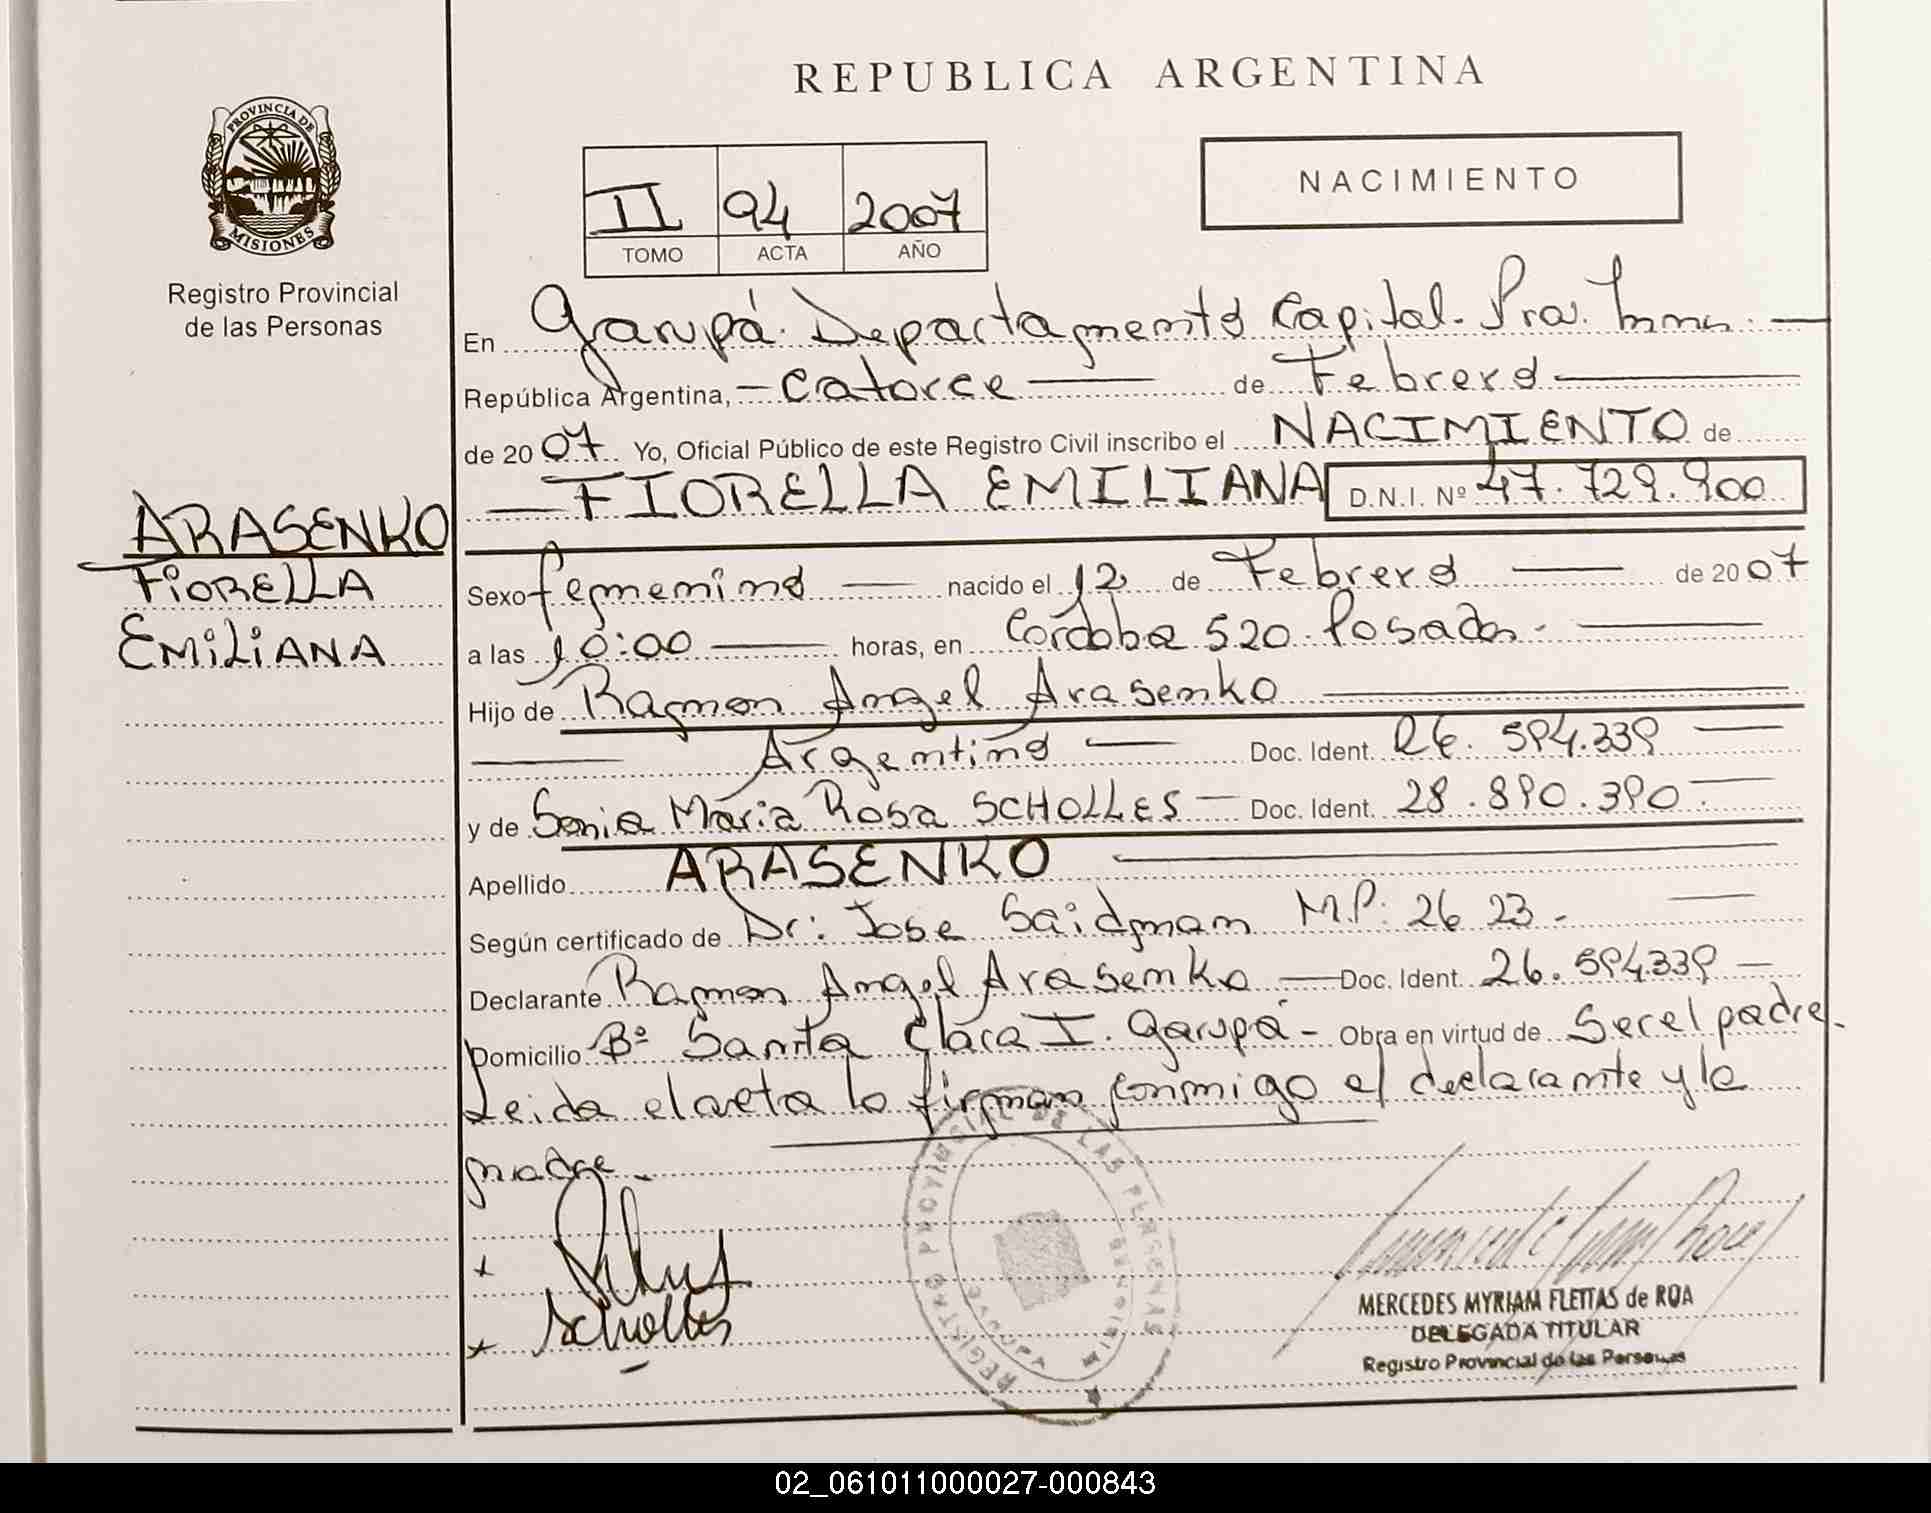 REPUBLICA ARGENTINA
PROVINCIA DE MISIONES
Registro Provincial
de las Personas
II 94 2007
TOMO ACTA AÑO
NACIMIENTO
En Garupá. Departamento Capital. Pra. Mnes. —
República Argentina, — catorce — de Febrero —
de 2007 Yo, Oficial Público de este Registro Civil inscribo el NACIMIENTO de
— FIORELLA EMILIANA D.N.I. Nº 47.729.900
ARASENKO
FiORELLA
EMiLiANA
Sexo femenino — nacido el 12 de Febrero — de 2007
a las 10:00 — horas, en Cordoba 520. Posadas. —
Hijo de Ramon Angel Arasenko —
— Argentino — Doc. Ident. 26.594.339 —
y de Sonia Maria Rosa SCHOLLES — Doc. Ident. 28.890.390. —
Apellido ARASENKO —
Según certificado de Dr: Jose Saidman M.P: 2623. —
Declarante Ramon Angel Arasenko — Doc. Ident. 26.594.339 —
Domicilio Bº Santa Clara I. Garupá - Obra en virtud de Ser el padre.
Leida el acta la firman conmigo el declarante y la
madre.
x
x Scholles
REGISTRO PROVINCIAL DE LAS PERSONAS
MERCEDES MYRIAM FLEITAS de ROA
DELEGADA TITULAR
Registro Provincial de las Personas
02_061011000027-000843